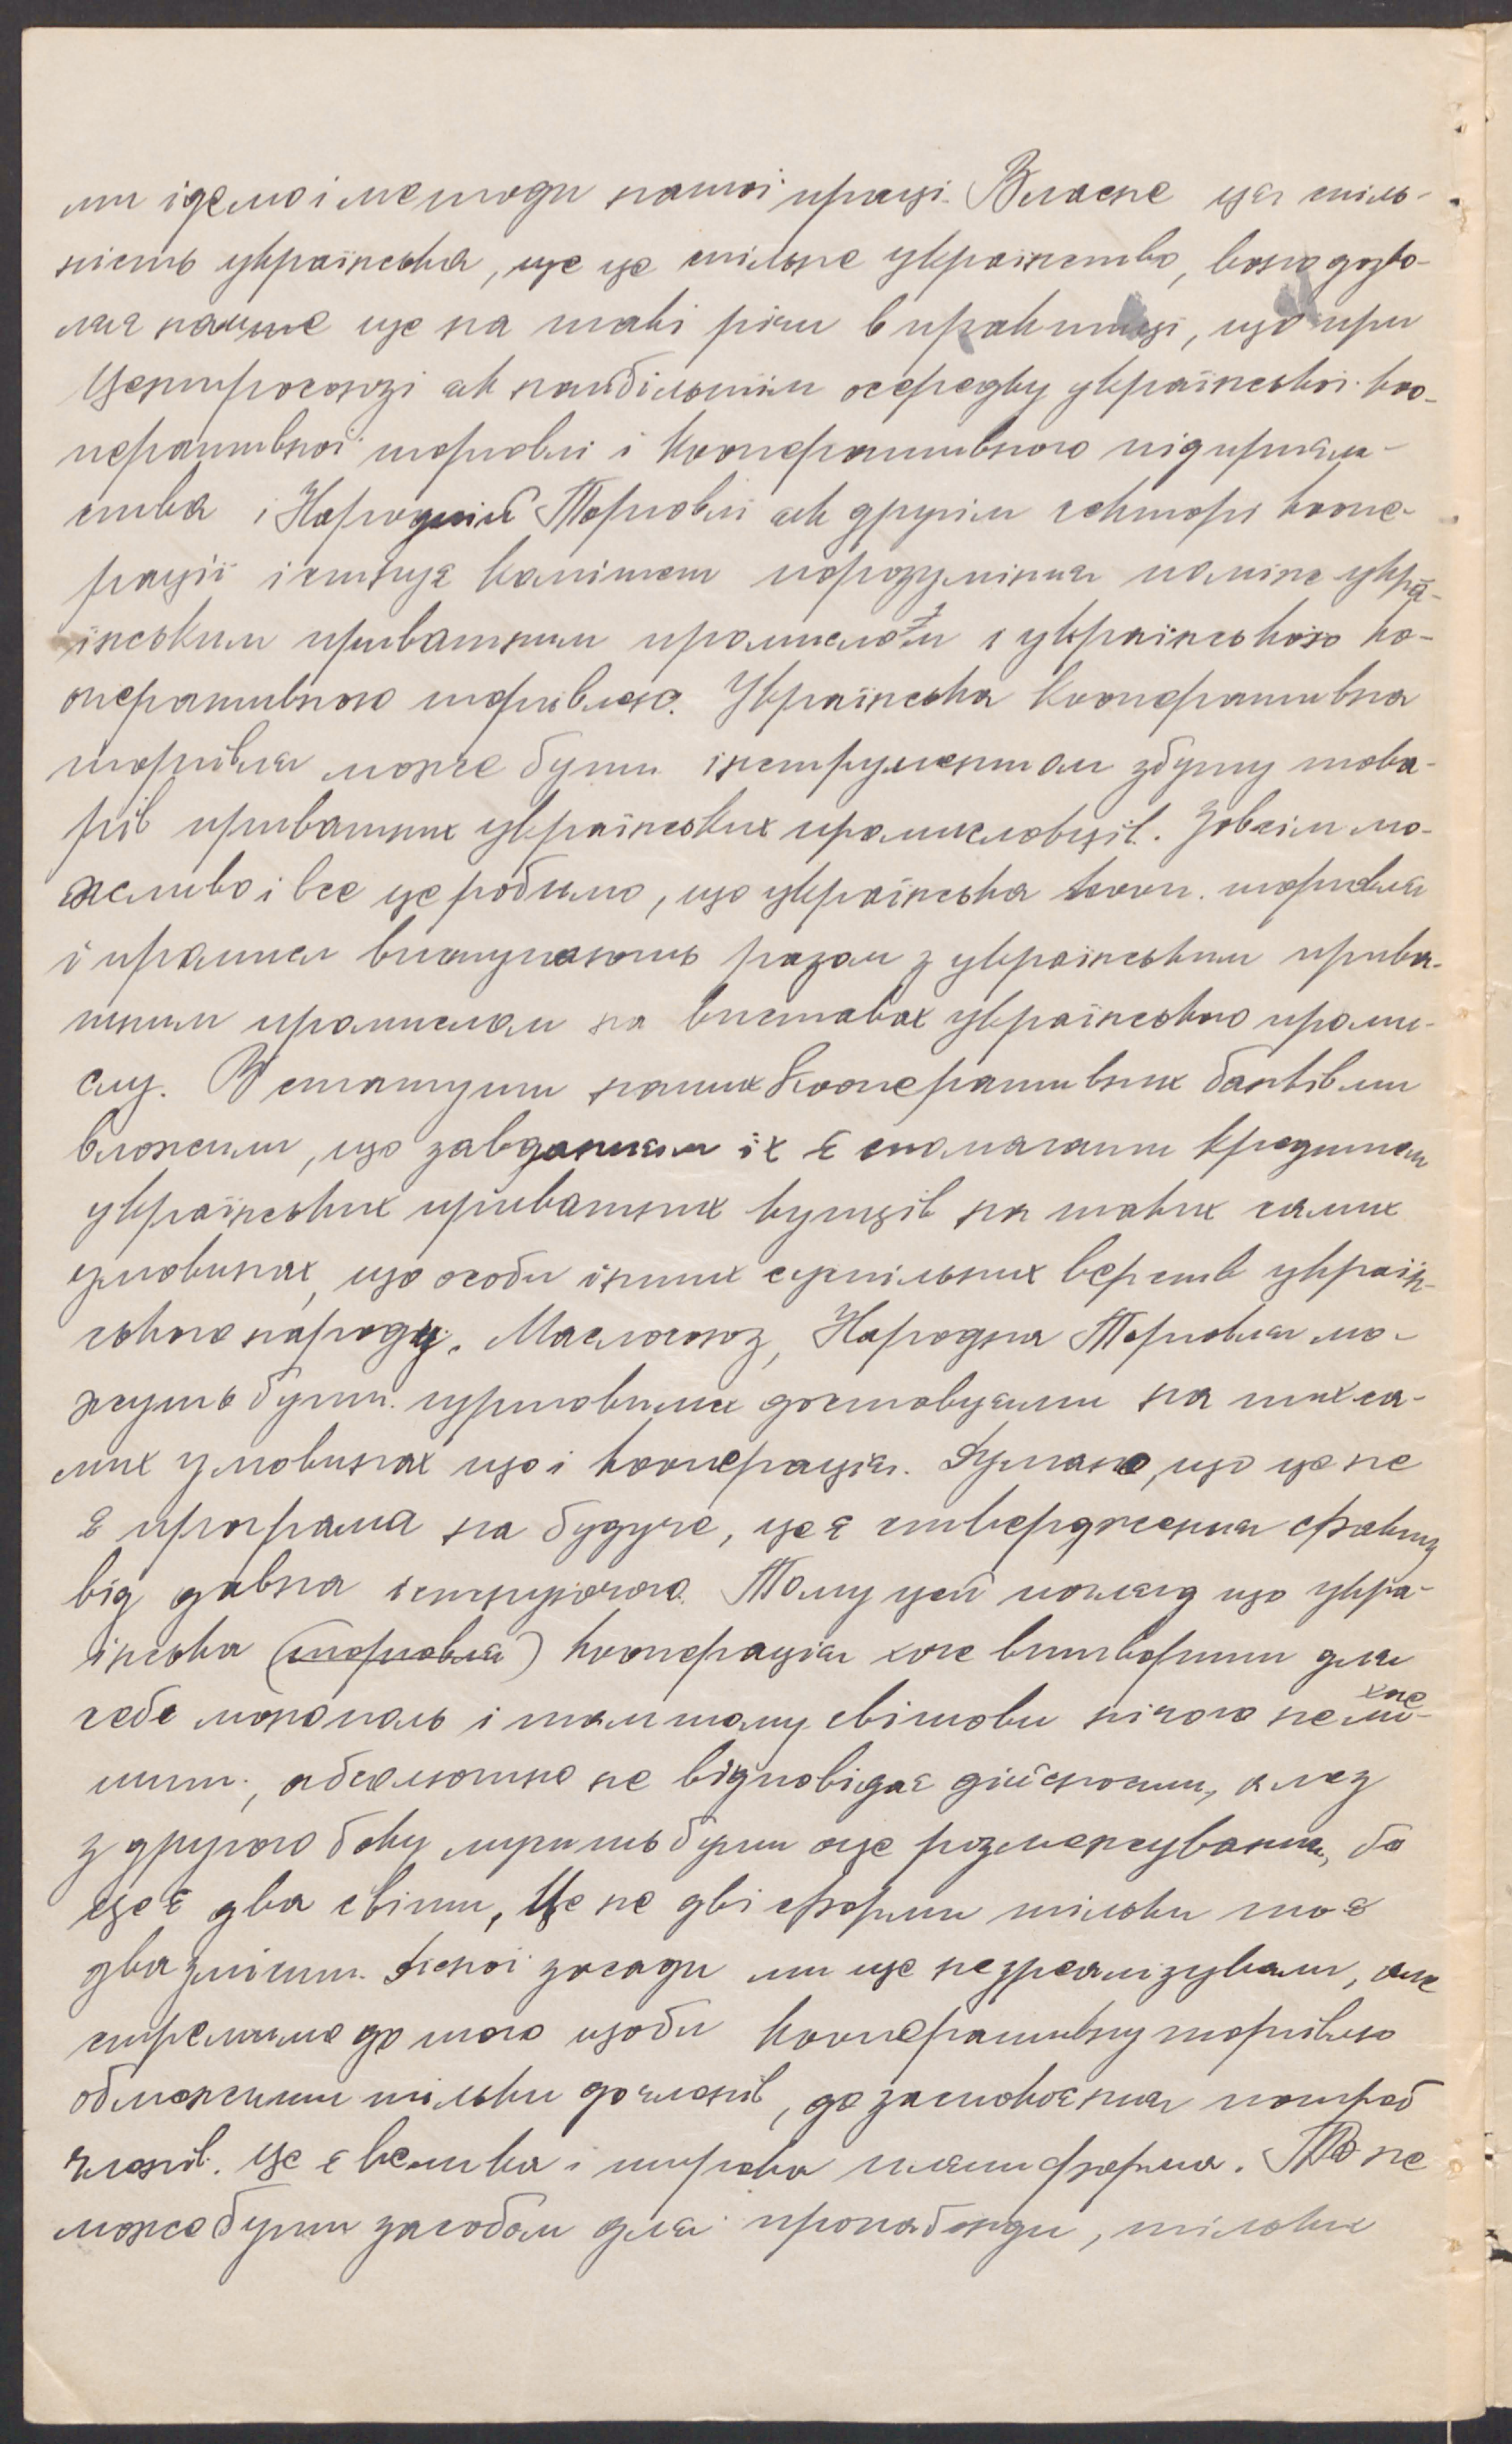 ми ідемо і методи нашої праці. Власне ця спіль-
ність українська, ще це спільне українство, воно дозво-
ляє нам ще на такі річи в практиці, що при
Центросоюзі як найбільшім осередку української коо-
перативної торговлі і кооперативного підприєм-
ства і Народній Торговлі як другім секторі коопе-
рації істнує комітет порозуміння поміж укра-
їнським приватним промислом і українською ко-
оперативною торгівлею. Українська кооперативна
торгівля може бути інструментом збуту това-
рів приватних українських промисловців. Зовсім мо-
жливо і все це робимо, що українська кооп. торговля
і промисл виступають разом з українським прива-
тним промислом на виставах українського проми-
слу. В статути наших кооперативних банків ми
вложили, що завданням їх є спомагати кредитом
українських приватних купців на таких самих
умовинах, що особи інших суспільних верств україн-
ського народу. Маслосоюз, Народна Торговля мо-
жуть бути гуртовими доставцями на тих са-
мих умовинах що і кооперація. Думаю, що це не
є програма на будуче, це є ствердження факту
від давна істнуючого. Тому цей погляд що укра-
їнська (торговля) кооперація хоче витворити для
себе монополь і там тому світови нічого не хоче ли-
шити, абсолютно не відповідає дійсности, але з
з другого боку мусить бути оце розмежування, бо
це є два світи, Це не дві форми тільки то є
два змісти. Ясної засади ми ще не зреалізували, але
стремимо до того щоби кооперативну торгівлю
обмежити тільки до членів, до заспокоєння потреб
членів. Це є велика і широка платформа. То не
може бути засобом для пропаганди, тільки